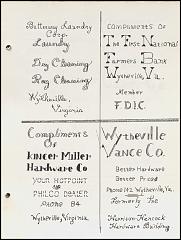 Bettway Laundry
Corp.
Laundry
Dry Cleaning
Rug Cleaning
Wytheville,
Virginia
Compliments Of
The First National
Farmers Bank
Wytheville, Va.
Member
F.D.I.C.
Compliments
Of
Kincer-Miller
Hardware Co
Your Hotpoint
Philco Dealer
Phone 84
Wytheville, Virginia
Wytheville
Vance Co.
Better Hardware
Better Prices
Phone 142 Wytheville, Va.
Formerly The
Harrison-Hancock
Hardware Building